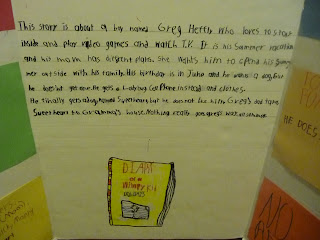 This story is about a boy named Greg Heffley who loves to stay
inside and play video games and watch T.V. It is his summer vacation
and his mom has different plans. She wants him to spend his summer
outside with his family. His birthday is in June and he wants a dog, but
he does not get one. He gets a Lady bug Cell Phone instead and clothes.
He finally gets a dog named Sweetheart but he does not like him. Greg's dad takes
Sweetheart to Gramma's house. Nothing really goes
DIARY
of a
Wimpy Kid
DOG DAYS
HE DOES
NO